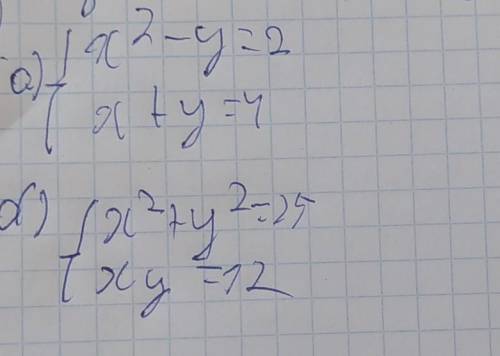 а) { x² - y = 2
x + y = 4
б) { x² + y² = 25
xy = 12